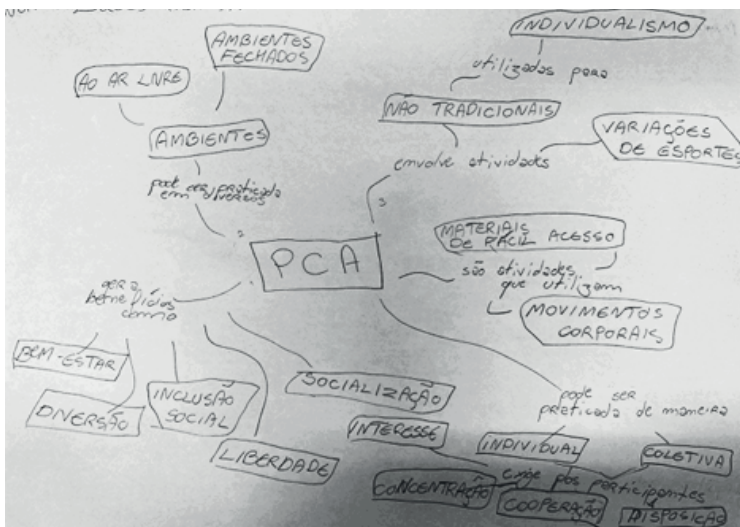 INDIVIDUALISMO
AMBIENTES
FECHADOS
utilizadas para
AO AR LIVRE
NÃO TRADICIONAIS
AMBIENTES
VARIAÇÕES
DE ESPORTES
envolve atividades
pode ser praticada
em diversos
MATERIAIS
DE FÁCIL ACESSO
PCA
são atividades
que utilizam
MOVIMENTOS
CORPORAIS
gera
benefícios
como
BEM-ESTAR
SOCIALIZAÇÃO
INCLUSÃO
SOCIAL
DIVERSÃO
LIBERDADE
pode ser
praticada de maneira
INTERESSE
INDIVIDUAL
COLETIVA
exige dos participantes
CONCENTRAÇÃO
COOPERAÇÃO
DISPOSIÇÃO